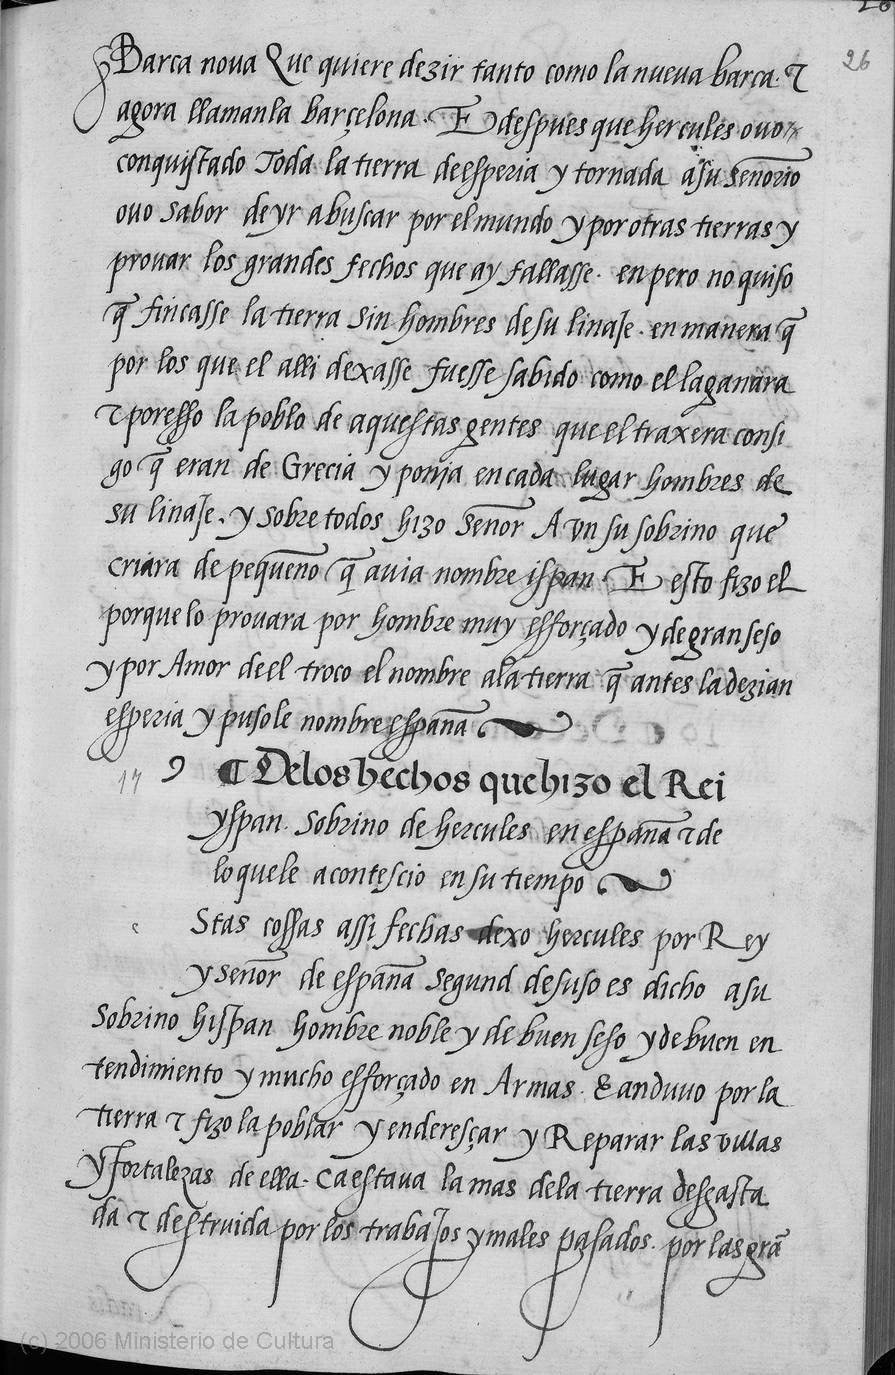 26
26
Barca nova Que quiere dezir tanto como la nueva barca. τ
agora llamanla barçelona. E despues que hercules ovo
conquistado Toda la tierra de esperia y tornada a su señorio
ovo sabor de yr a buscar por el mundo y por otras tierras y
provar los grandes fechos que ay fallasse. en pero no quiso
q̃ fincasse la tierra sin hombres de su linaje. en manera q̃
por los que el alli dexasse fuesse sabido como el la ganara
τ poresso la poblo de aquestas gentes que el traxera consi
go q̃ eran de Grecia y ponja en cada lugar hombres de
su linaje. y sobre todos hizo señor A vn su sobrino que
criara de pequeño q̃ avia nombre ispan. E esto fizo el
porque lo provara por hombre muy esforçado y de gran seso
y por Amor de el troco el nombre ala tierra q̃ antes la dezian
esperia y pusole nombre españa
17 9 ¶ De los hechos que hizo el Rei
yspan. Sobrino de hercules en españa τ de
lo que le acontesçio en su tiempo
e Stas cossas assi fechas dexo hercules por Rey
y señor de españa segund de suso es dicho a su
Sobrino hispan hombre noble y de buen seso y de buen en
tendimiento y mucho esforçado en Armas. & anduuo por la
tierra τ fizo la poblar y enderesçar y Reparar las villas
y fortalezas de ella. Ca estava la mas dela tierra desgasta
da τ destruida por los trabajos y males pasados. por las grã
(c) 2006 Ministerio de Cultura